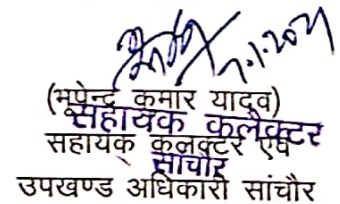 7.1.2021
(भूपेन्द्र कुमार यादव)
सहायक कलैक्टर
सहायक कलक्टर एवं
सांचौर
उपखण्ड अधिकारी सांचौर